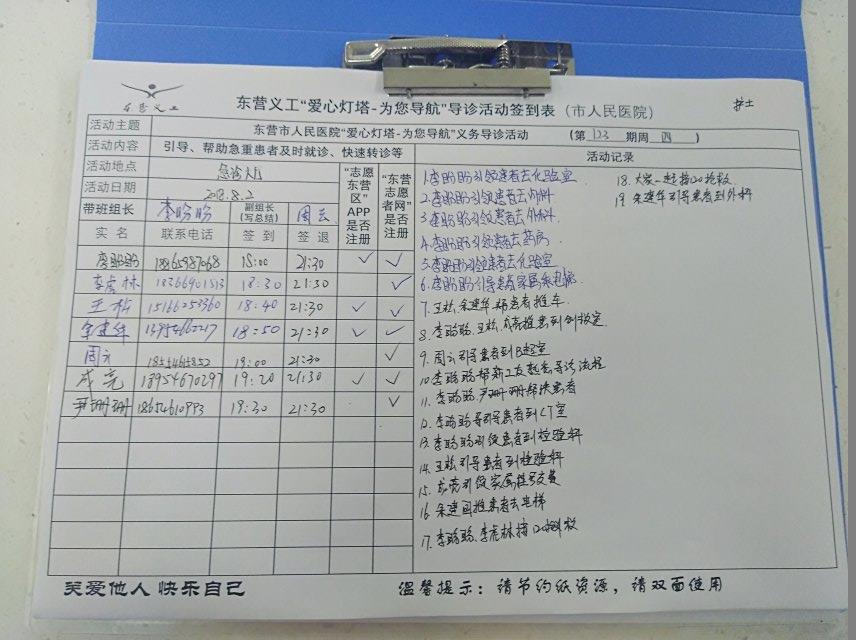 东营义工
东营义工“爱心灯塔-为您导航”导诊活动签到表（市人民医院）
护士
活动主题 东营市人民医院“爱心灯塔-为您导航”义务导诊活动 （第 123 期周 四 ）
活动内容 引导、帮助急重患者及时就诊、快速转诊等
活动地点 急诊大厅
活动日期 2018.8.2
带班组长 李盼盼 副组长（写总结） 周云
“志愿东营区”APP是否注册
“东营志愿者网”是否注册
实名 联系电话 签到 签退
李盼盼 18:00 21:30 ✓ ✓
李虎林 18366901513 18:30 21:30 ✓
王松 15166253360 18:40 21:30 ✓ ✓
宋建华 18:50 21:30 ✓ ✓
周云 19:00 21:30 ✓
成亮 18954670297 19:20 21:30 ✓ ✓
尹珊珊 18654610993 19:30 21:30 ✓
活动记录
1.李盼盼引领患者去化验室
2.李盼盼引领患者去内科
3.李盼盼引领患者去外科.
4.李盼盼引领患者去药房.
5.李盼盼引领患者去化验室
6.李盼盼引导患者家属乘电梯.
7.王松、宋建华 患者推车
8.李盼盼、王松、成亮推患者到 室
9.周云引导患者到B超室
10.李盼盼帮新工友熟悉导诊流程
11.李盼盼、尹珊珊 患者
12.李盼盼引导患者到CT室
13.李盼盼引领患者到检验科
14.王松引导患者到检验科
15.成亮引领家属挂号交费
16.宋建 推患者去电梯
17.李盼盼、李虎林接120
18.大家一起接120抢救
19.宋建华引导患者到外科
关爱他人 快乐自己
温馨提示：请节约纸资源，请双面使用